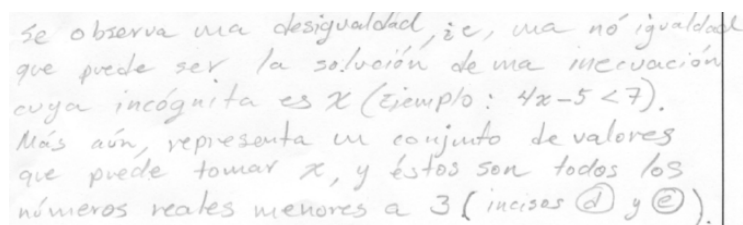 Se observa una desigualdad, ie, una no igualdad
que puede ser la solución de una inecuación
cuya incógnita es x (Ejemplo: 4x-5<7).
Más aún, representa un conjunto de valores
que puede tomar x, y éstos son todos los
números reales menores a 3 (incisos ⓓ y ⓔ).